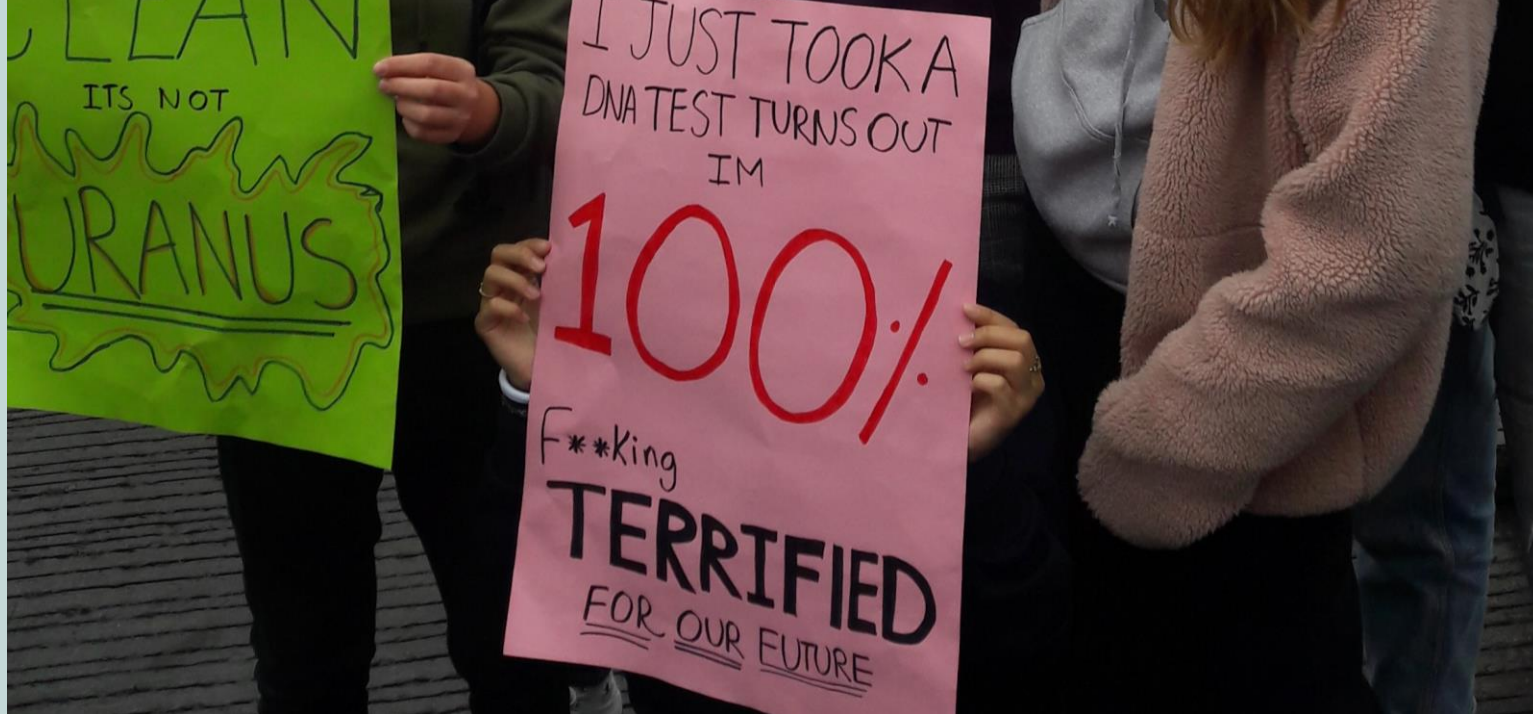 CLEAN
ITS NOT
URANUS
I JUST TOOK A
DNA TEST TURNS OUT
IM
100%
F**King
TERRIFIED
FOR OUR FUTURE